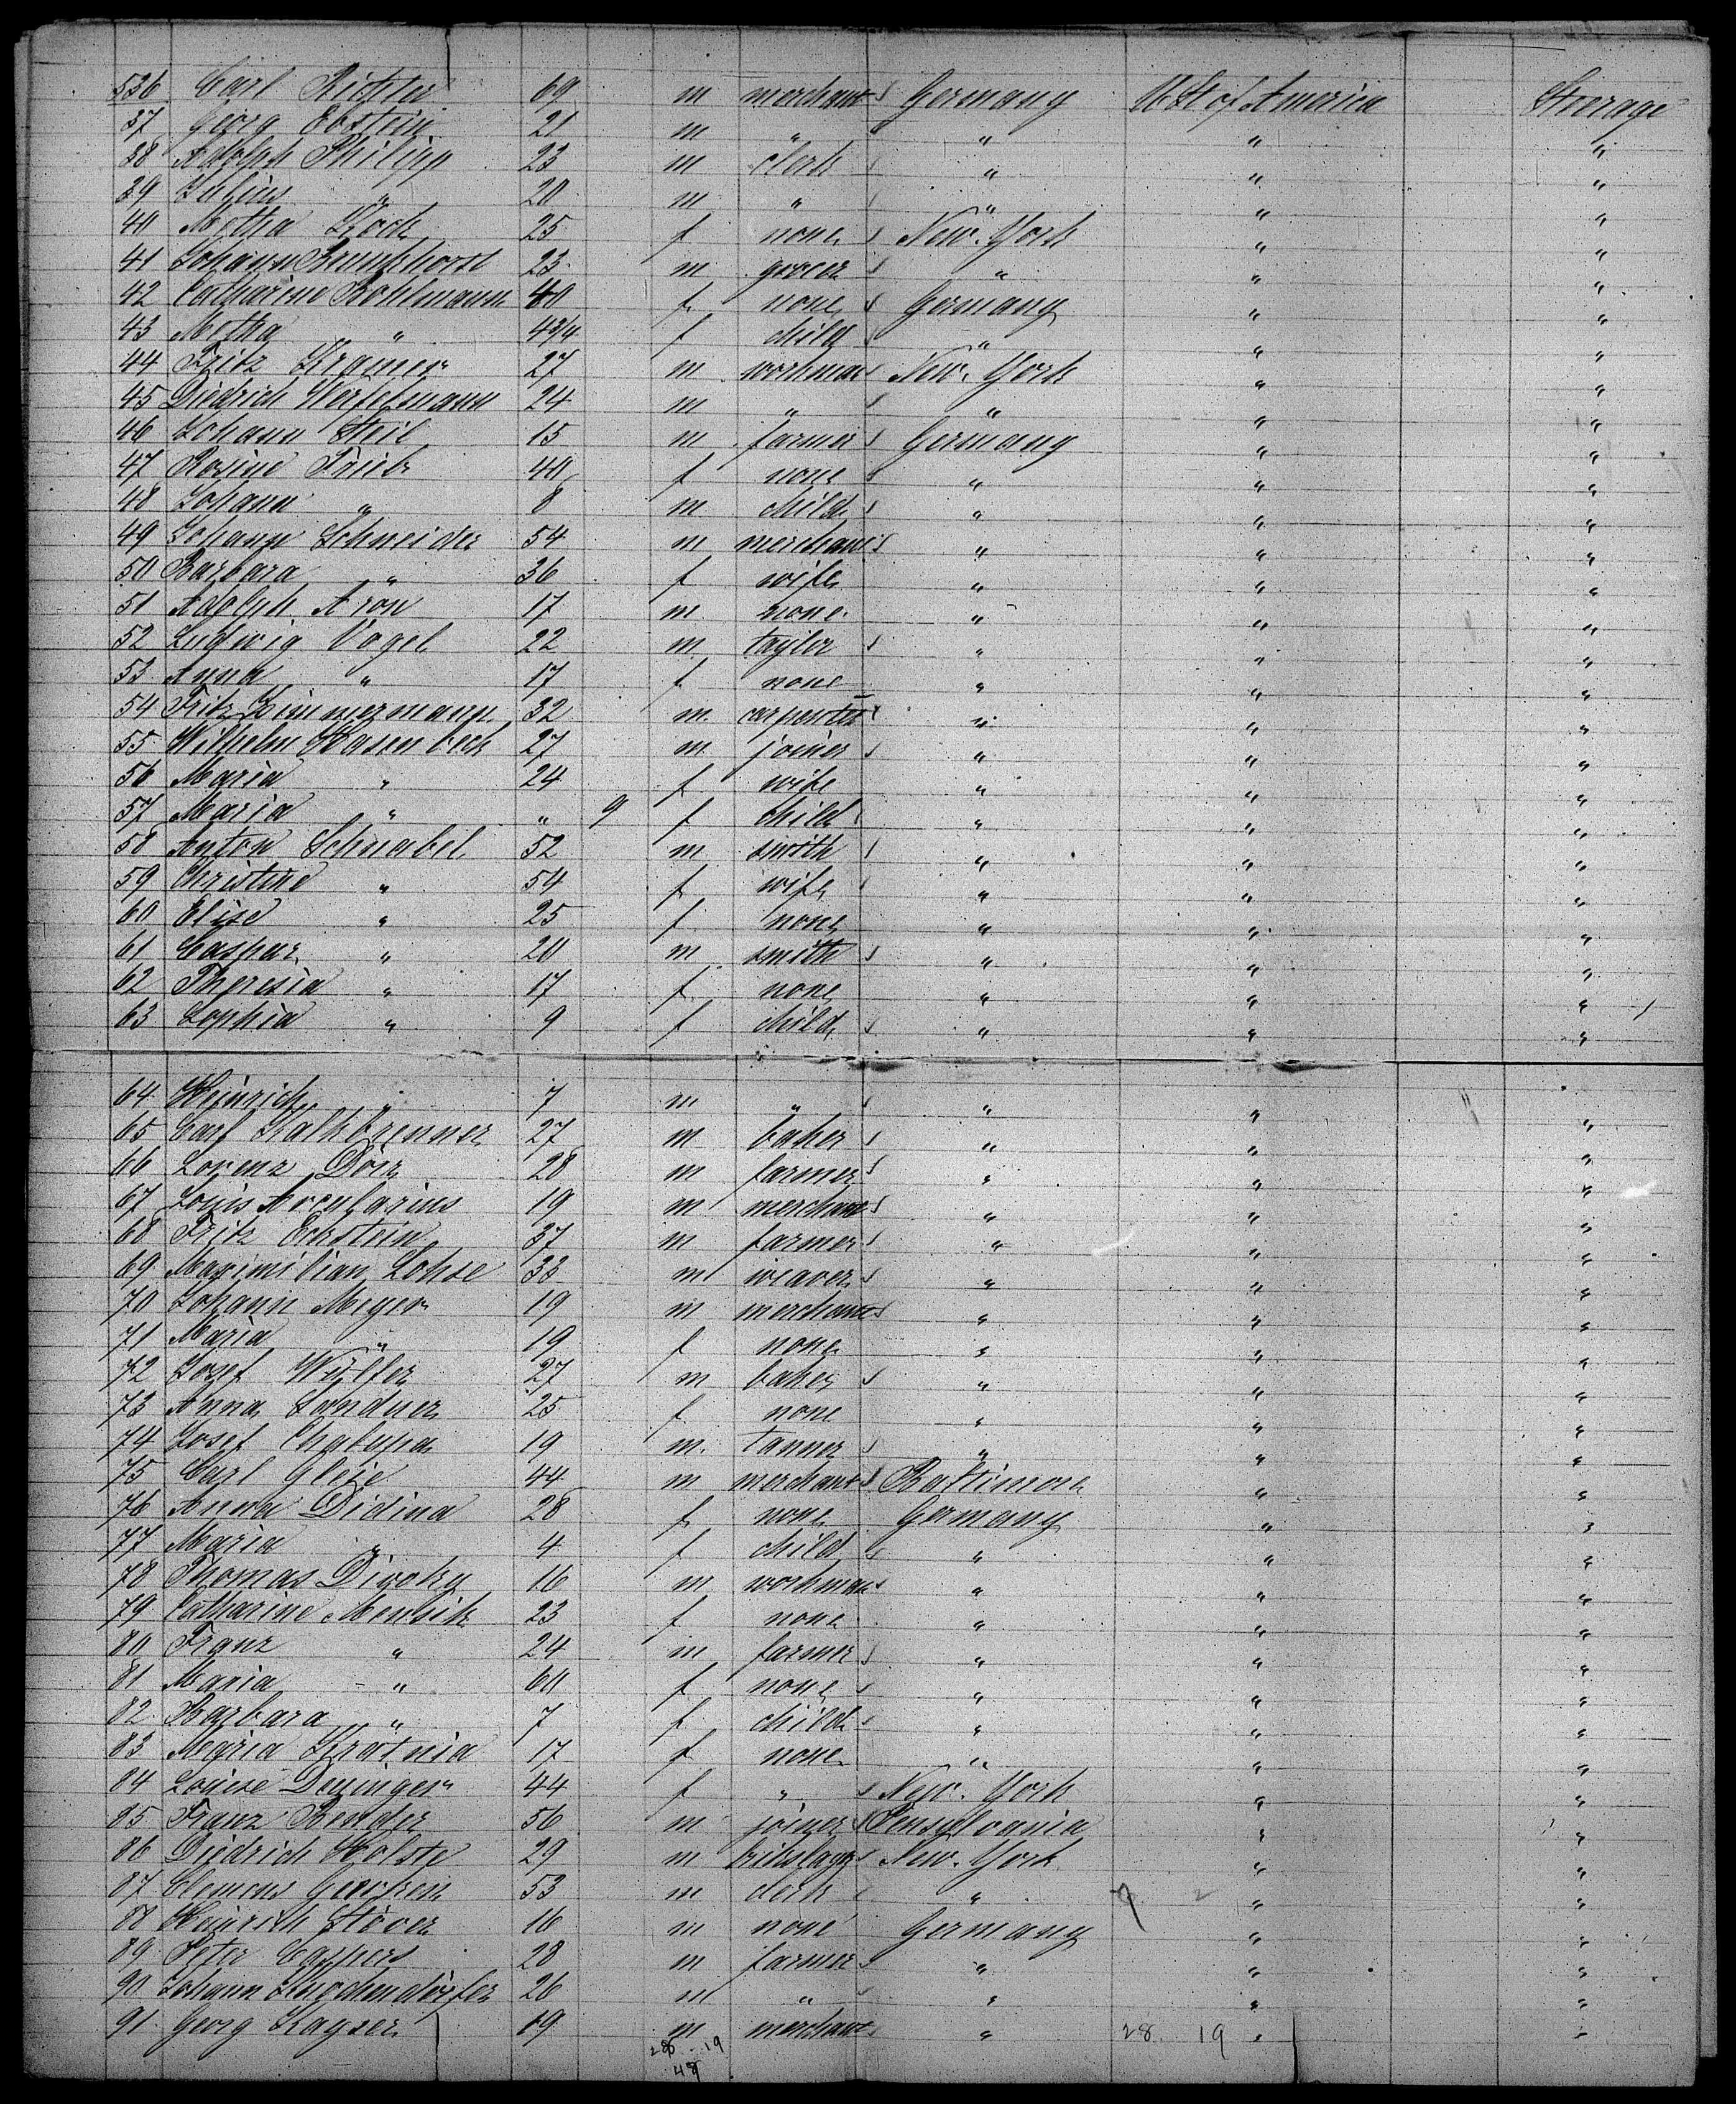 536 Carl Richter 69 m merchant s Germany U. St. of America Steerage
37 Georg Ebstein 21 m " " " "
38 Adolph Philipp 23 m clerk " " "
39 Julius " 20 m " " " "
40 Metha Koch 25 f none s New. York " "
41 Johann Brunkhorst 23 m grocer s " " "
42 Catharine Bohlmann 40 f none s Germany " "
43 Metha " 4 3/4 f child " " "
44 Fritz Kramer 27 m workman s New. York " "
45 Diedrich Werfelmann 24 m " s " " "
46 Johann Steil 15 m farmer s Germany " "
47 Rosine Trieb 40 f none s " " "
48 Johann " 8 m child s " " "
49 Johann Schneider 54 m merchant s " " "
50 Barbara " 36 f wife " " "
51 Adolph Aron 17 m none " " "
52 Ludwig Vogel 22 m taylor s " " "
53 Anna " 17 f none " " "
54 Fritz Zimmermann 32 m carpenter s " " "
55 Wilhelm Hasenbeck 27 m joiner s " " "
56 Maria " 24 f wife " " "
57 Maria " " 9 f child s " " "
58 Anton Schnabel 52 m smith s " " "
59 Christine " 54 f wife s " " "
60 Elise " 25 f none " " "
61 Caspar " 20 m smith s " " "
62 Theresia " 17 f none " " "
63 Sophia " 9 f child s " " "
64 Heinrich " 7 m " s " " "
65 Carl Kalkbrenner 27 m baker s " " "
66 Lorenz Dörr 28 m farmer s " " "
67 Louis Avenarius 19 m merchant s " " "
68 Fritz Eckstein 37 m farmer s " " "
69 Maximilian Lohse 33 m weaver s " " "
70 Johann Meyer 19 m merchant s " " "
71 Maria " 19 f none " " "
72 Josef Wülfer 27 m baker s " " "
73 Anna Lindner 25 f none " " "
74 Josef Chalupa 19 m tanner s " " "
75 Carl Gleie 44 m merchant s Baltimore " "
76 Anna Didina 28 f none Germany " "
77 Maria " 4 f child s " " "
78 Thomas Divoky 16 m workman s " " "
79 Catharine Mensik 23 f none " " "
80 Franz " 24 m farmer s " " "
81 Maria " 60 f none s " " "
82 Barbara " 7 f child s " " "
83 Maria Kratnia 17 f none " " "
84 Louise Deninger 44 f " s New. York " "
85 Franz Bender 56 m joiner s Pensylvania " "
86 Diedrich Holste 29 m s New. York " "
87 Clemens Gercken 53 m clerk s " " "
88 Heinrich Stöver 16 m none Germany " "
89 Peter Caspers 28 m farmer s " " "
90 Johann Knochendörfer 26 m " s " " "
91 Georg Kayser 19 m merchant s " " "
28 19
28 . 19
48